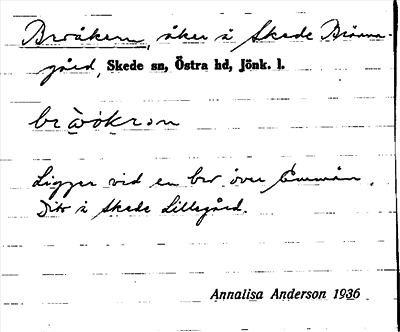 Broåkern, åker å Skede Brunns-
gård, Skede sn, Östra hd, Jönk. l.
Ligger vid en bro över Emmån.
Dito å Skede Lillegård.
Annalisa Anderson 1936